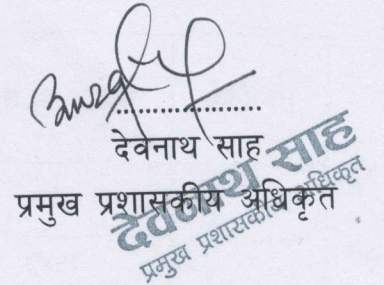 ....................
देवनाथ साह
प्रमुख प्रशासकीय अधिकृत
देवनाथ साह
प्रमुख प्रशासकीय अधिकृत